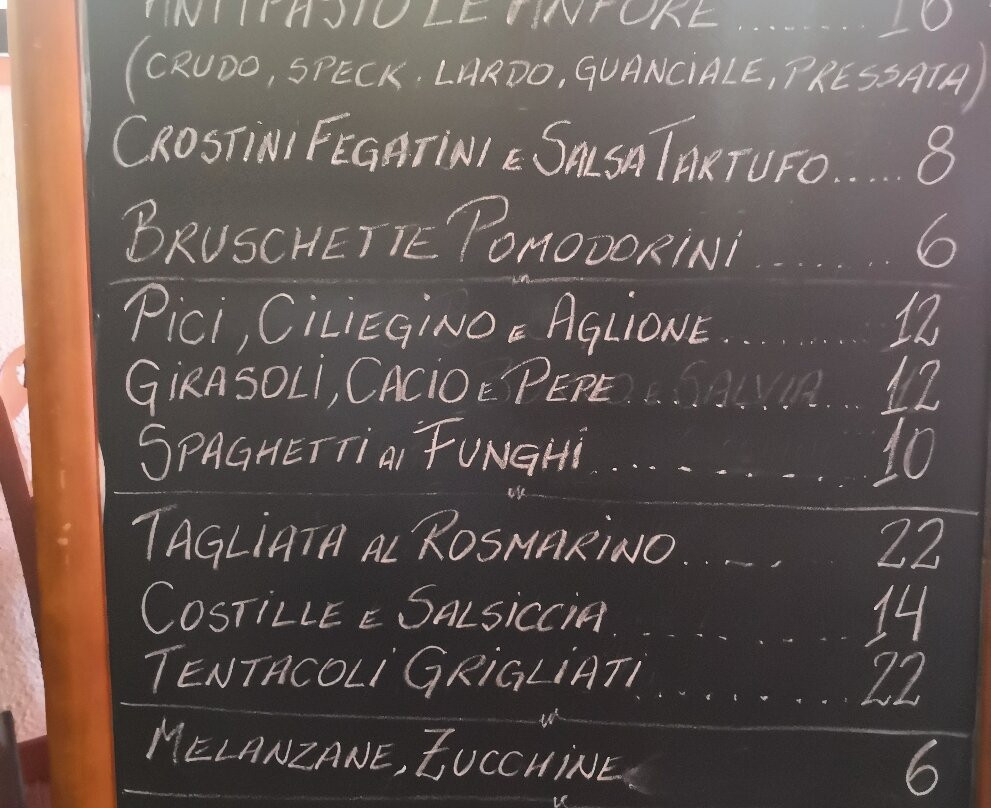 ANTIPASTO LE ANFORE ........ 16
(CRUDO, SPECK. LARDO, GUANCIALE, PRESSATA)
CROSTINI FEGATINI E SALSA TARTUFO..... 8
BRUSCHETTE POMODORINI ........ 6
PICI, CILIEGINO E AGLIONE.......... 12
GIRASOLI, CACIO E PEPE .......... 12
SPAGHETTI AI FUNGHI .......... 10
TAGLIATA AL ROSMARINO ..... 22
COSTILLE E SALSICCIA ......... 14
TENTACOLI GRIGLIATI ......... 22
MELANZANE, ZUCCHINE 6